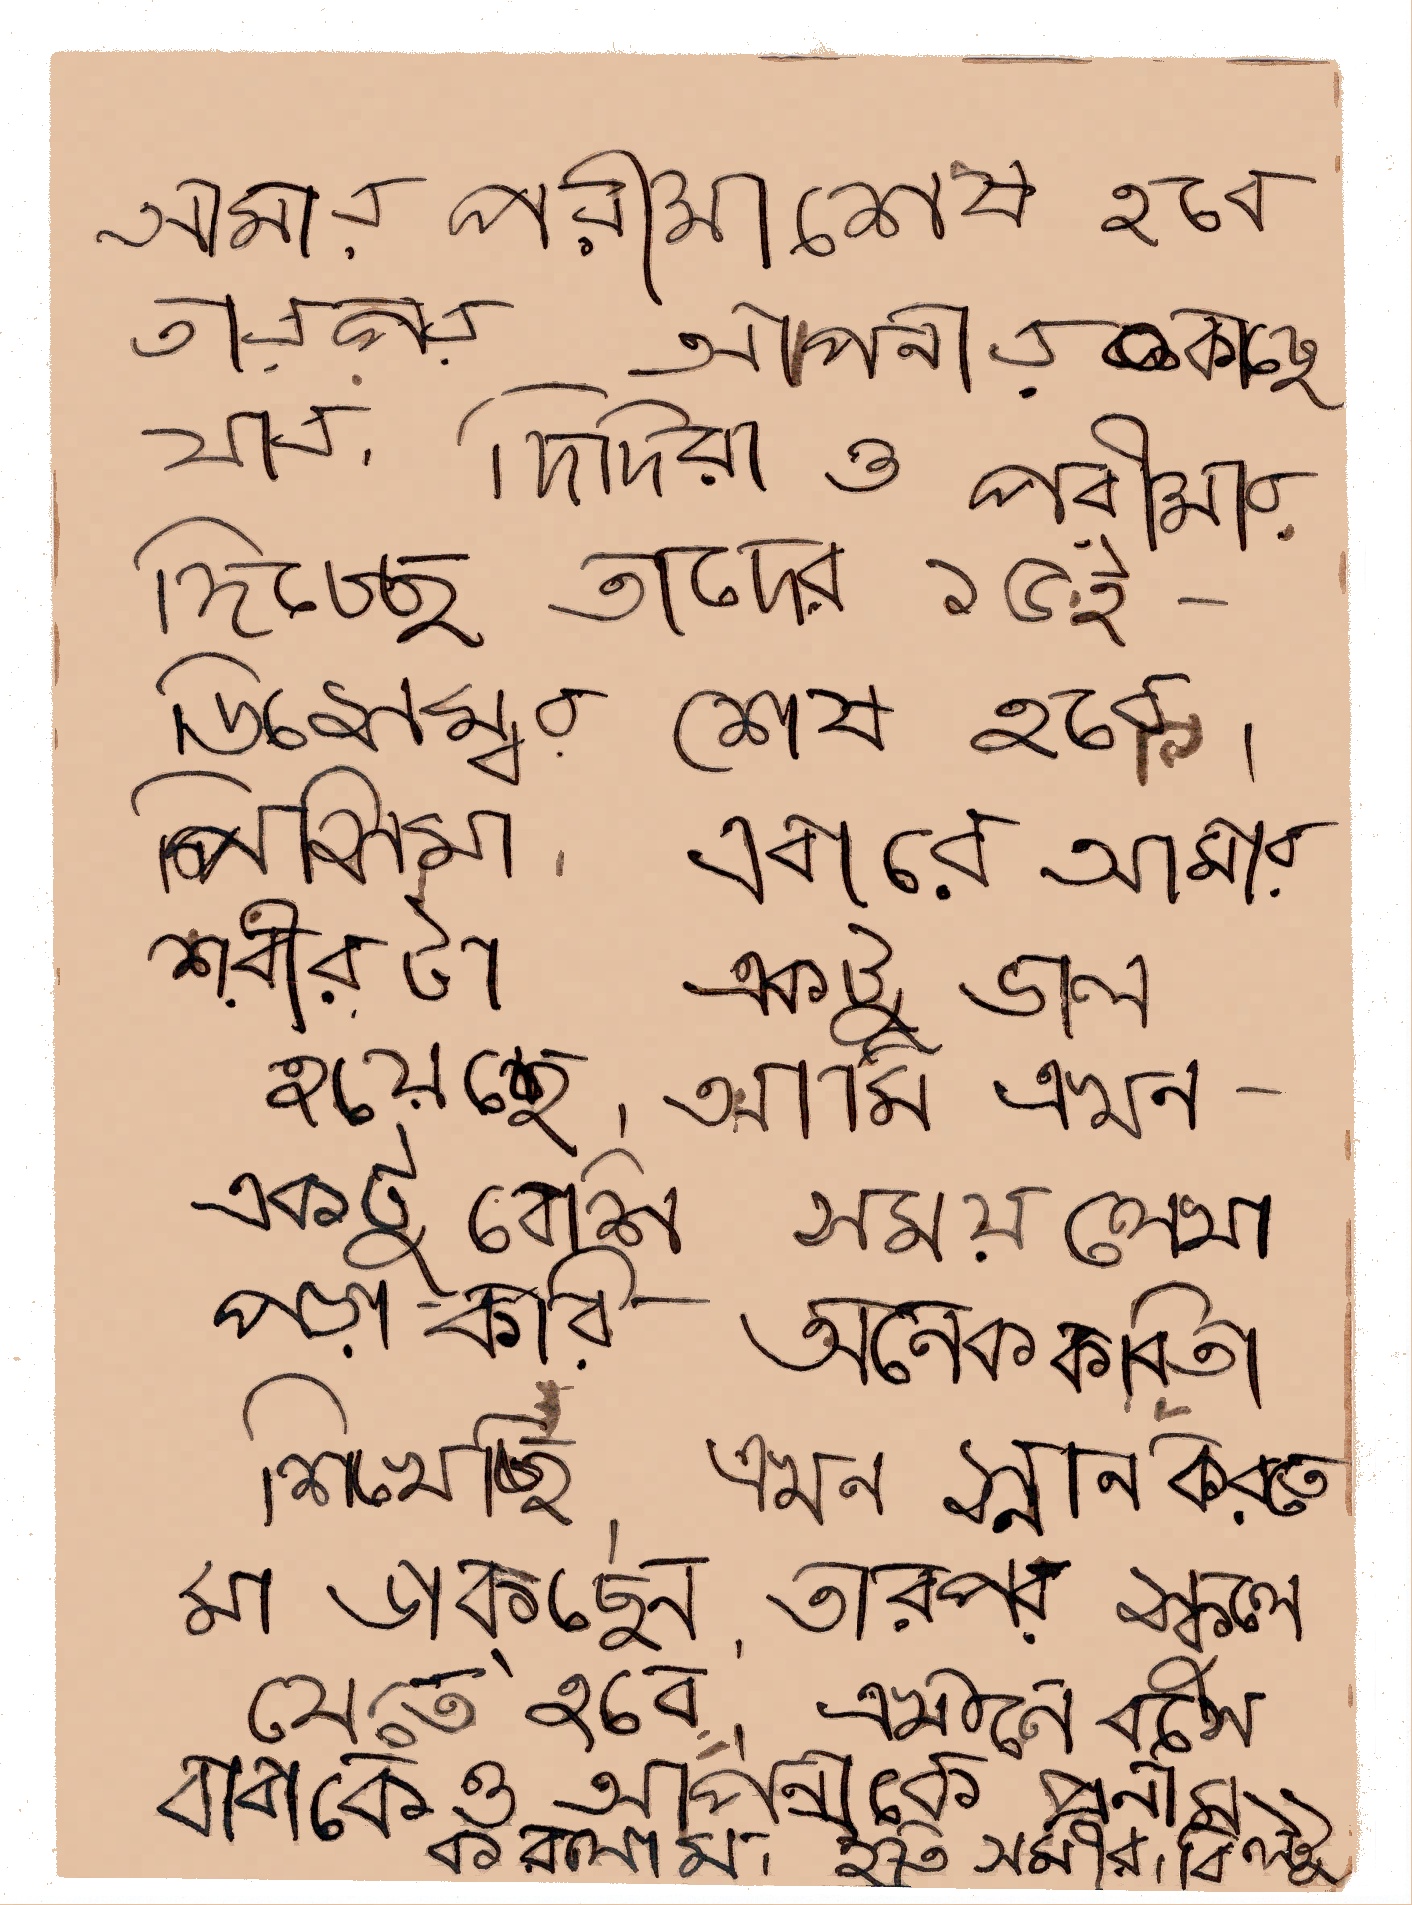 আমার পরীক্ষা শেষ হবে
তারপর আপনার কাছে
যাব। দিদিরা ও পরীক্ষার
দিচ্ছে তাদের ১৫ই -
ডিসেম্বর শেষ হবে।
পিসিমা। এবারে আমার
শরীরটা একটু ভাল
হয়েছে। আমি এখন -
একটু বেশি সময় লেখা
পড়া করি - অনেক কবিতা
শিখেছি। এখন স্নান করতে
মা ডাকছেন। তারপর স্কুলে
যেতে হবে। এখানে বসে
বাবাকে ও আপনাকে প্রনাম
করলাম। ইতি সমীর। বিল্টু